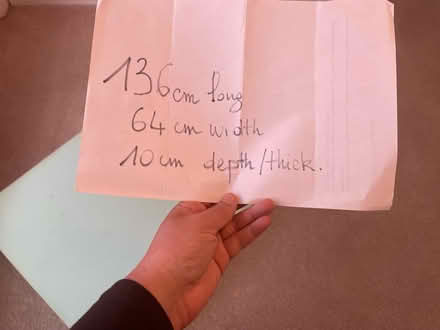 136cm long
64 cm width
10cm depth/thick.